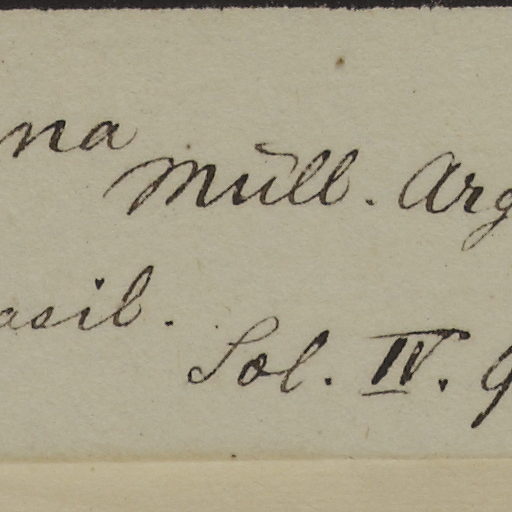 na
Müll. Arg
asil.
Sol. IV. 9